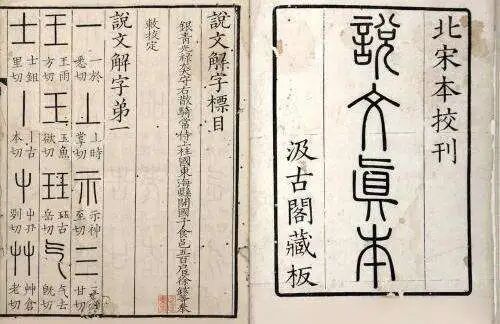 北宋本挍刊
說文眞本
汲古閣藏板
說文解字標目
銀青光祿大夫守右散騎常侍上柱國東海縣開國子食邑五百戶徐鉉等奉
敕挍定
說文解字弟一
一 一於悉切
丄 丄時掌切
示 示神至切
三 甘切
王 王雨方切
玉 玉魚欲切
玨 玨古岳切
气 气去旣切
士 士鉏里切
丨 丨古本切
屮 屮丑列切
艸 艸倉老切